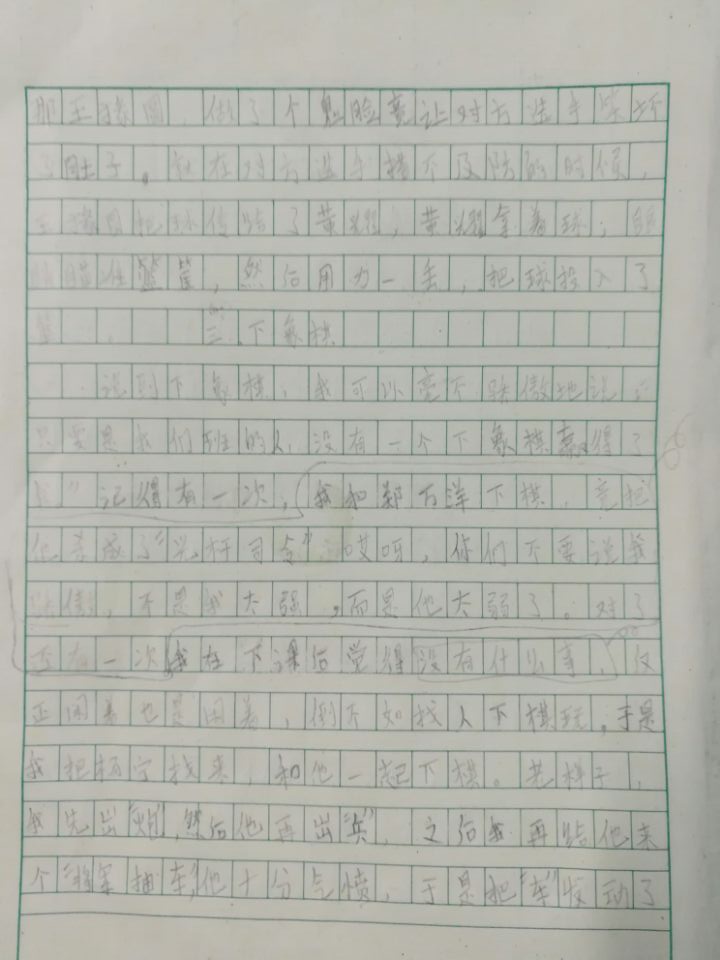 那王豬圈，做了个鬼脸竟让对方选手笑坏
了肚子。就在对方选手措不及防的时候，
王 把球传给了黄 ，黄 拿着球，
瞄准篮筐，然后用力一丢，把球投入了
篮。 三、下象棋
说到下象棋，我可以毫不骄傲地说：
只要是我们班的人，没有一个下象棋赢得了
我”记得有一次，我和郑万洋下棋，竟把
他杀成了“光杆司令”哎呀，你们不要说我
骄傲，不是我太强，而是他太弱了。对了
还有一次我在下课后觉得没有什么事，反
正闲着也是闲着，倒不如找人下棋玩，于是
我把杨宁找来，和他一起下棋。老样子，
我先出“炮”，然后他再出“兵”，之后我再给他来
个“将军抽车”，他十分气愤，于是把“车”发动了